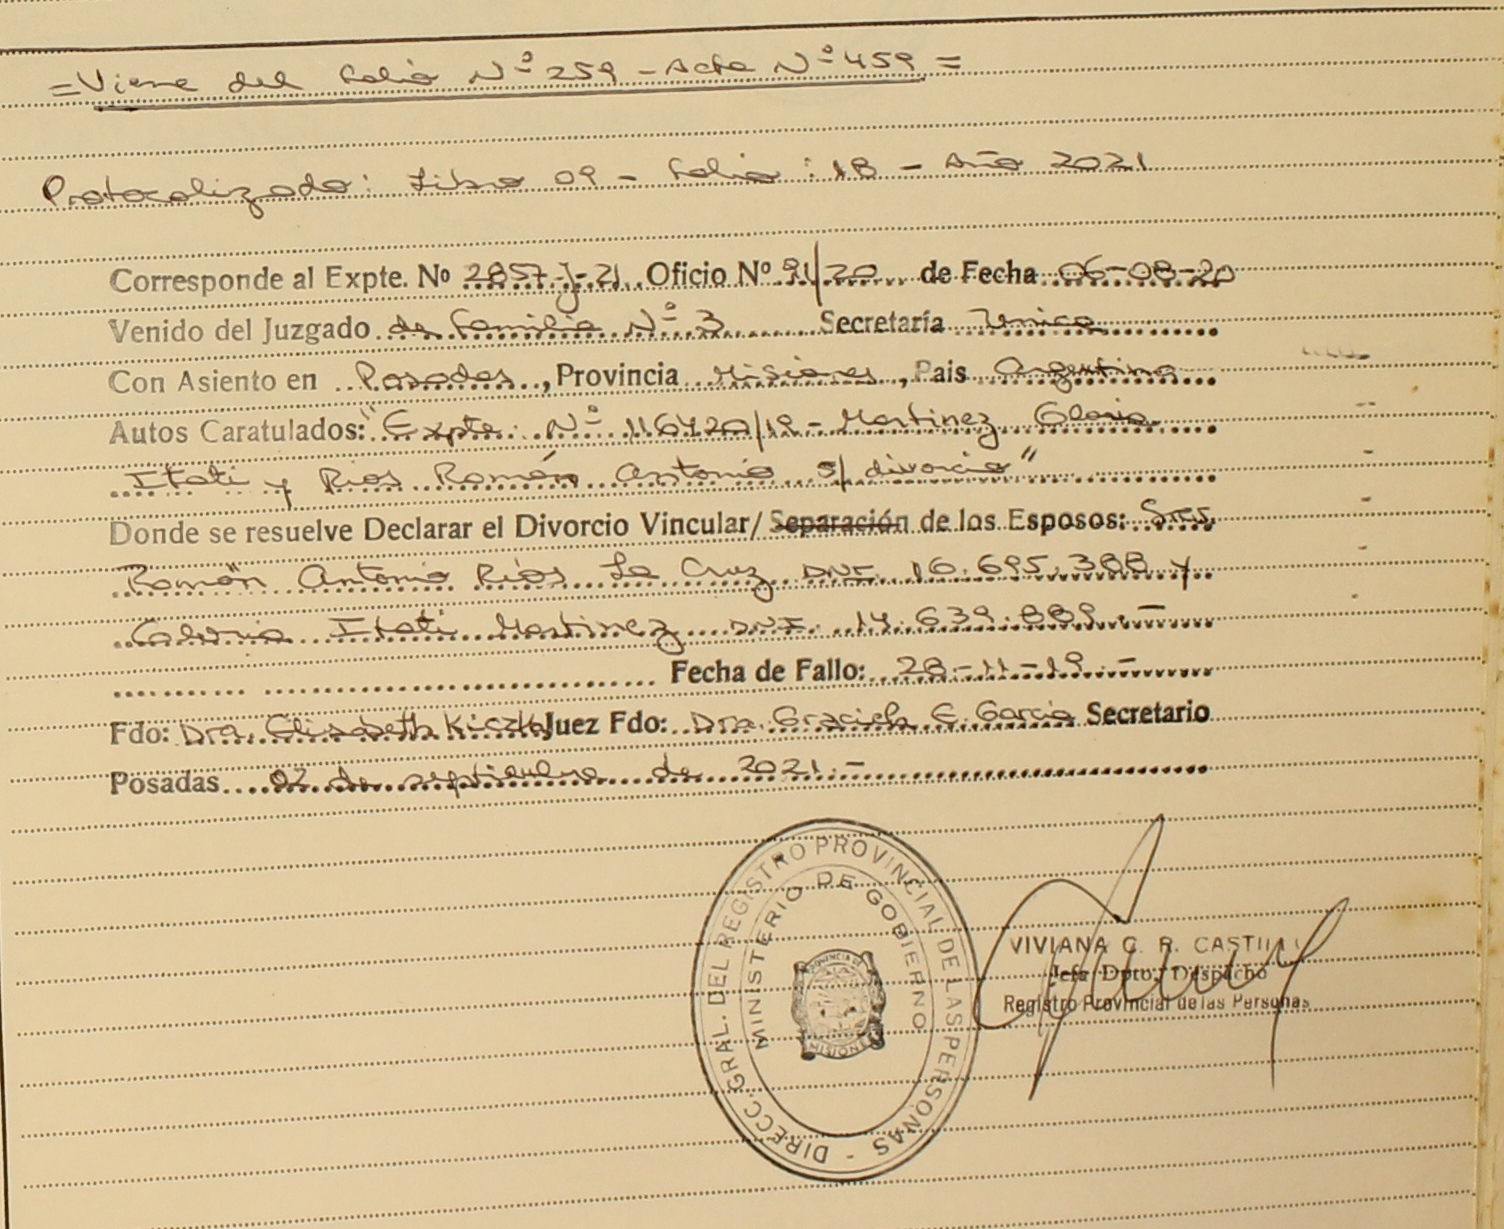 = Viene del folio Nº 259 - Acta Nº 459 =
Protocolizado: Libro 09 - folio: 18 - Año 2021
Corresponde al Expte. Nº 2857-J-21 Oficio Nº 91/20 de Fecha 06-08-20
Venido del Juzgado de Familia Nº 3 Secretaría Unica
Con Asiento en Posadas, Provincia Misiones, Pais Argentina
Autos Caratulados: "Expte. Nº 116420/19 - Martinez Gloria
Itati y Rios Román Antonio s/ divorcio"
Donde se resuelve Declarar el Divorcio Vincular/ Separación de los Esposos: Sres
Román Antonio Ríos La Cruz DNI. 16.695.388 y
Gloria Itati Martinez DNI. 14.639.889.-
Fecha de Fallo: 28-11-19.-
Fdo: Dra. Elisabeth Juez Fdo: Dra. Graciela E. Garcia Secretario
Posadas 02 de septiembre de 2021.-
DIRECC. GRAL. DEL REGISTRO PROVINCIAL DE LAS PERSONAS -
MINISTERIO DE GOBIERNO
PROVINCIA DE
MISIONES
VIVIANA C. R. CASTILLO
Jefa Dpto. Despacho
Registro Provincial de las Personas